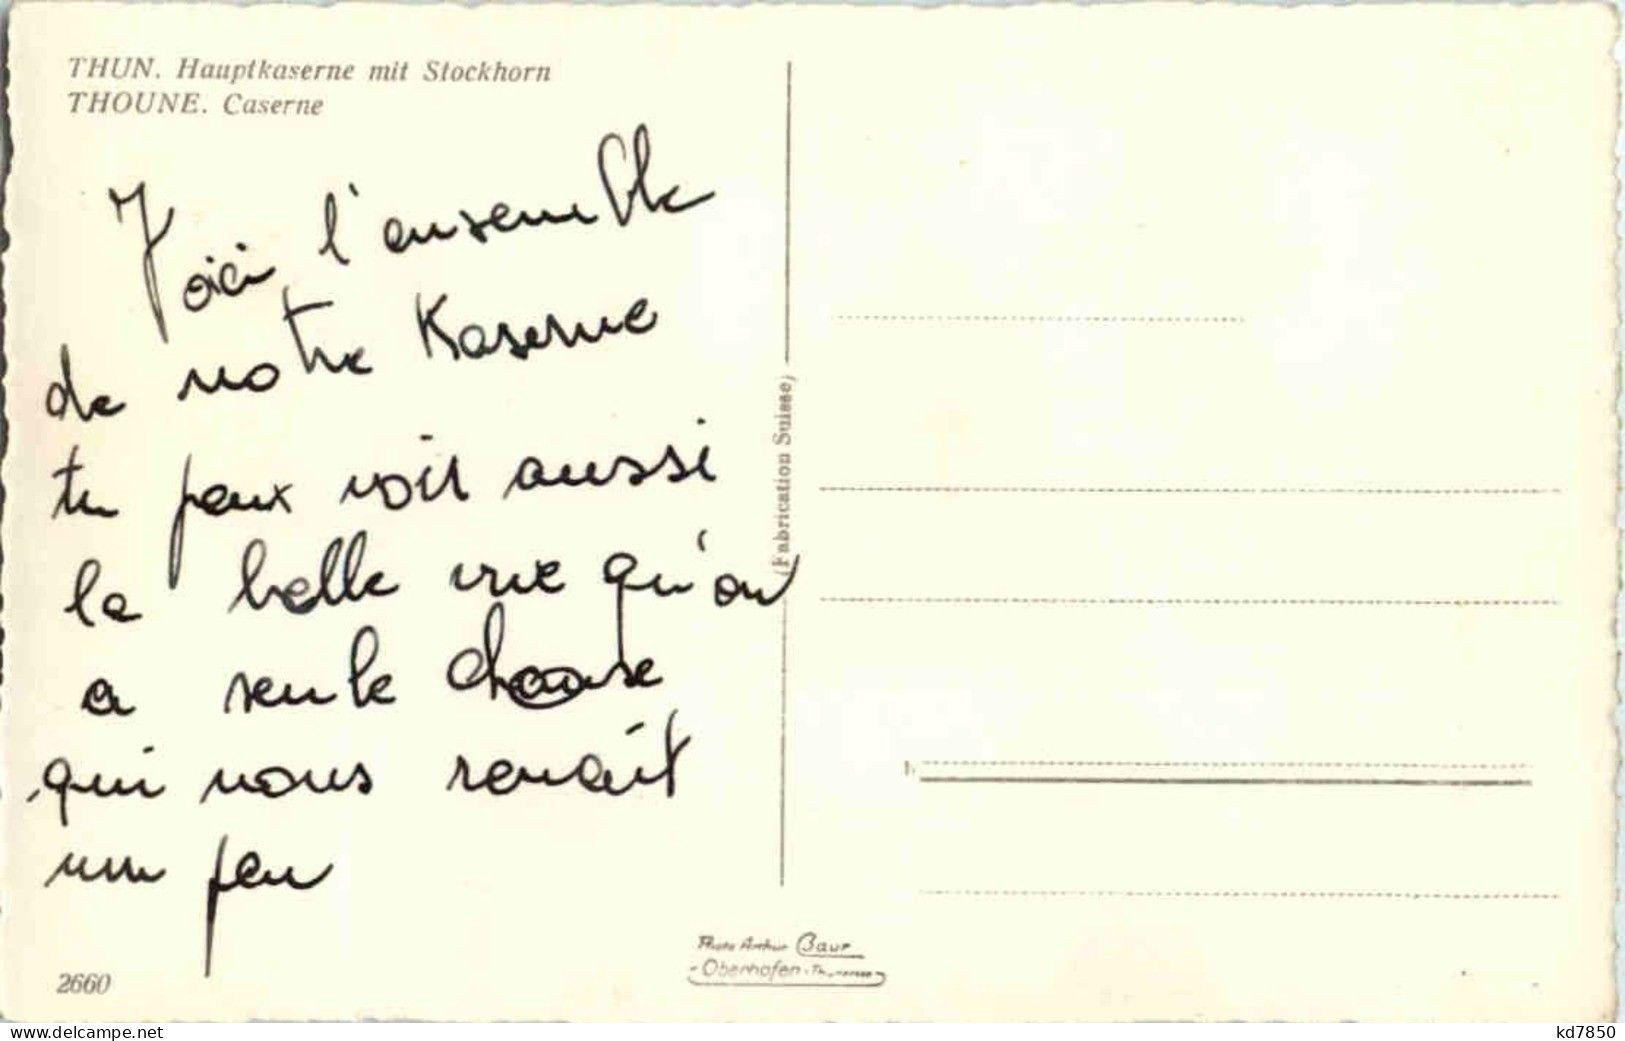 THUN. Hauptkaserne mit Stockhorn
THOUNE. Caserne
Voici l'ensemble
de notre Kaserne
tu peux voir aussi
la belle vue qu'on
a seule chose
qui nous ravait
un peu
(Fabrication Suisse)
2660
Photo Arthur Baur
Oberhofen - Thunersee
www.delcampe.net
kd7850